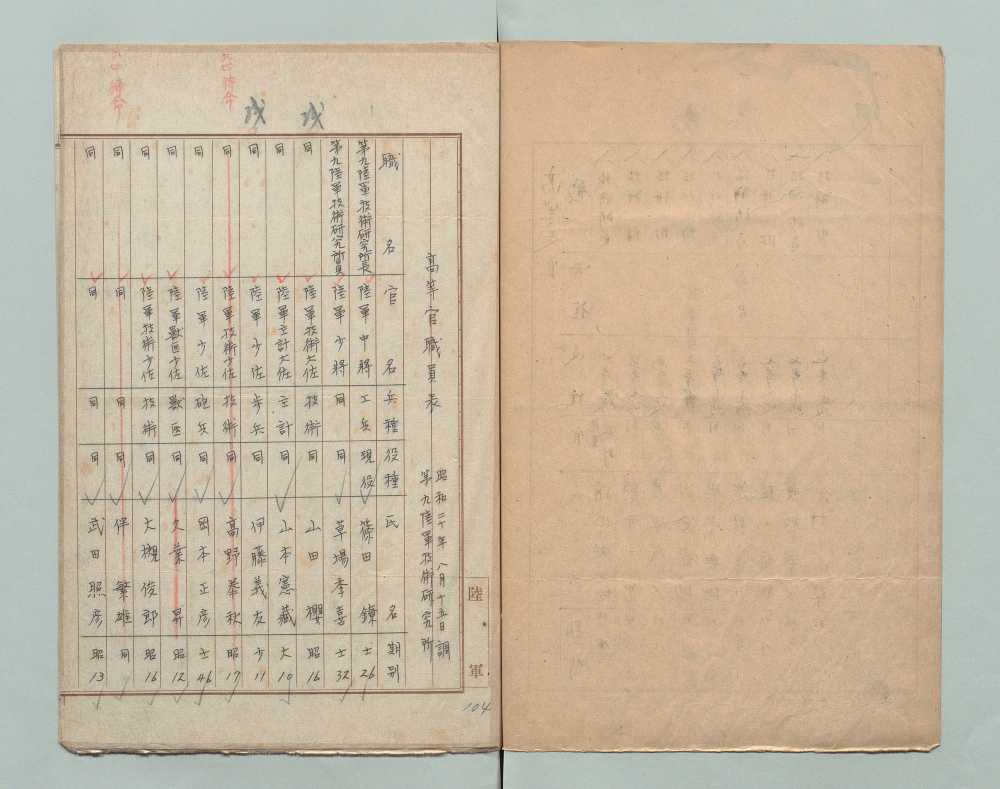 高等官職員表
昭和二十年八月十五日調
第九陸軍技術研究所
職名 官名 兵種 役種 氏名 期別
第九陸軍技術研究所長 陸軍中將 工兵 現役 篠田鐐 士26
第九陸軍技術研究所員 陸軍少將 同 同 草場季喜 士32
同 陸軍技術大佐 技術 同 山田櫻 昭16
同 陸軍主計大佐 主計 同 山本憲藏 大10
同 陸軍少佐 歩兵 同 伊藤義友 少11
同 陸軍技術少佐 技術 同 高野泰秋 昭17
同 陸軍少佐 砲兵 同 岡本正彦 士46
同 陸軍獣医少佐 獣医 同 久葉昇 昭12
同 陸軍技術少佐 技術 同 大槻俊郎 昭16
同 同 同 同 伴繁雄 同
同 同 同 同 武田照彦 昭13
陸軍
104